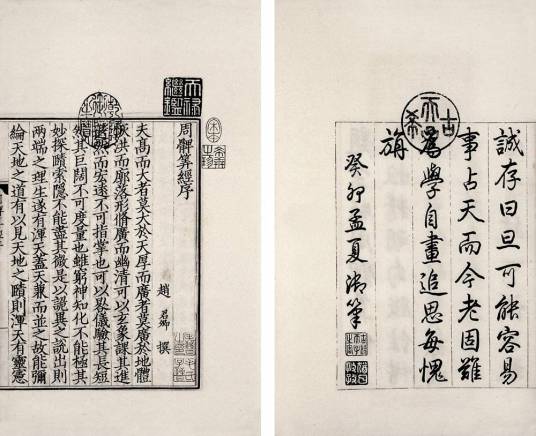 誠存曰旦可能容易
事占天而今老固難
為學自畫追思每愧
旃
癸卯孟夏御筆
天祿繼鑑
周髀筭經序
趙君卿撰
夫高而大者莫大於天厚而廣者莫廣於地體
恢洪而廓落形脩廣而幽清可以玄象課其進
退然而宏遠不可指掌也可以晷儀驗其長短
然其巨闊不可度量也雖窮神知化不能極其
妙探賾索隱不能盡其微是以詭異之說出則
兩端之理生遂有渾天蓋天兼而並之故能彌
綸天地之道有以見天地之賾則渾天有靈憲